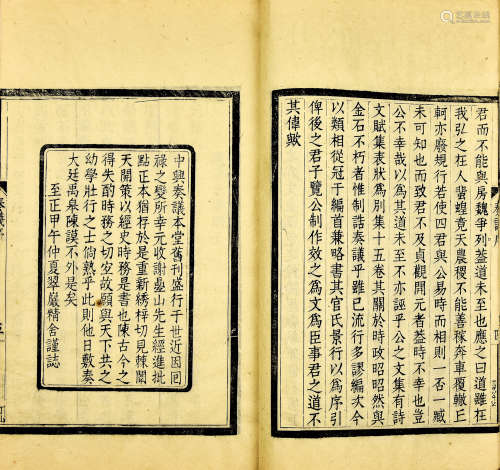 君而不能與房魏爭列蓋道未至也應之曰道雖在
我弘之在人蜚蝗竟天農稷不能善稼奔車覆轍丘
軻亦廢規行若使四君與公易時而相則一否一臧
未可知也而致君不及貞觀開元者蓋時不幸也豈
公不幸哉以為其道未至不亦誣乎公之文集有詩
文賦集表狀為別集十五卷其關於時政昭昭然與
金石不朽者惟制誥奏議乎雖已流行多謬編次今
以類相從冠于編首兼略書其官氏景行以為序引
俾後之君子覽公制作效之為文為臣事君之道不
其偉歟
中興奏議本堂舊刊盛行于世近因回
祿之變所幸元收謝疊山先生經進批
點正本猶存於是重新綉梓切見棘闈
天開策以經史時務是書也陳古今之
得失酌時務之切宜故願與天下共之
幼學壯行之士倘熟乎此則他日敷奏
大廷禹臯陳謨不外是矣
至正甲午仲夏翠巖精舍謹誌